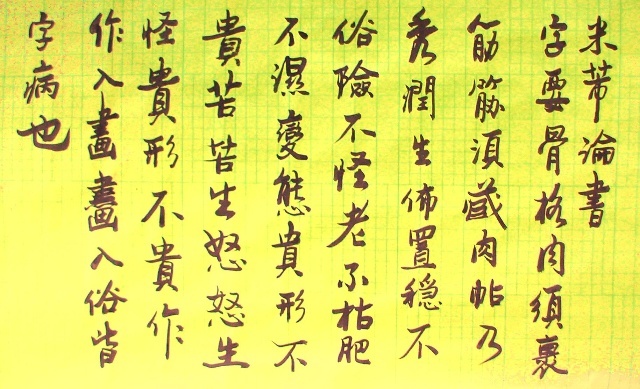 米芾論書
字要骨格肉須裹
筋筋須藏肉帖乃
秀潤生佈置穩不
俗險不怪老不枯肥
不濕變態貴形不
貴苦苦生怒怒生
怪貴形不貴作
作入畫畫入俗皆
字病也